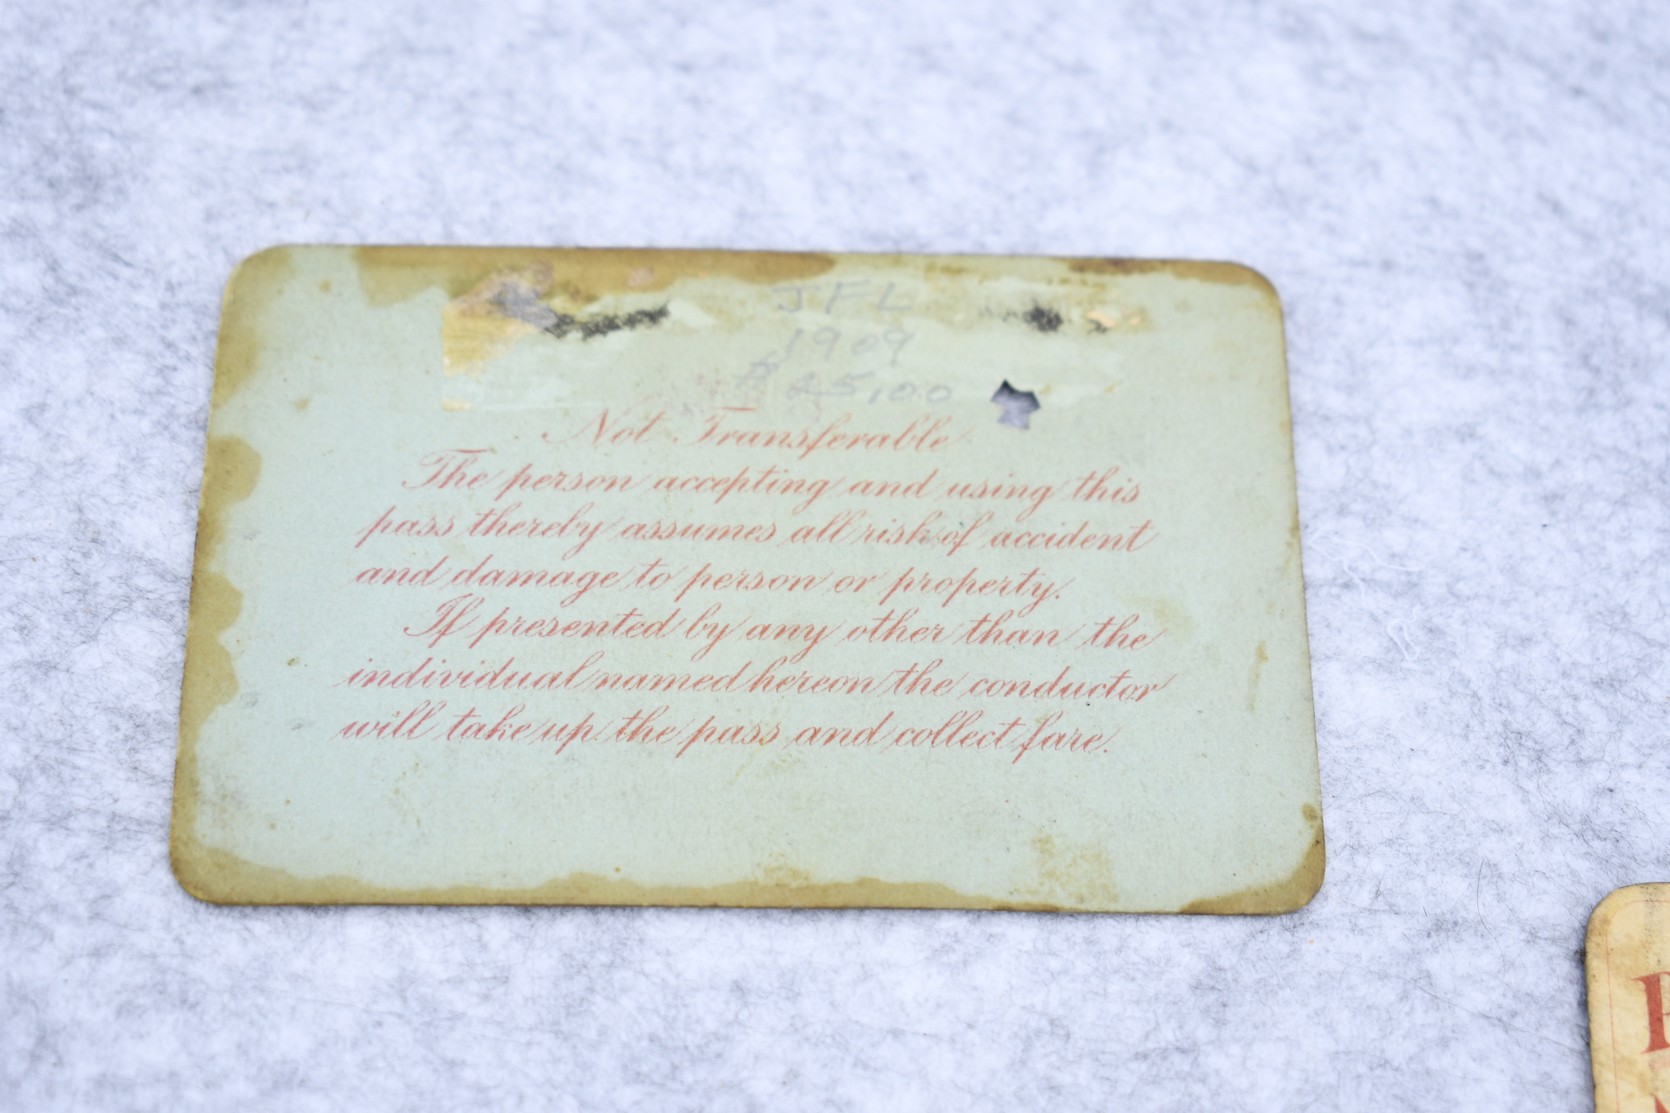 JFL
1909
$25.00
Not Transferable
The person accepting and using this
pass thereby assumes all risk of accident
and damage to person or property.
If presented by any other than the
individual named hereon the conductor
will take up the pass and collect fare.